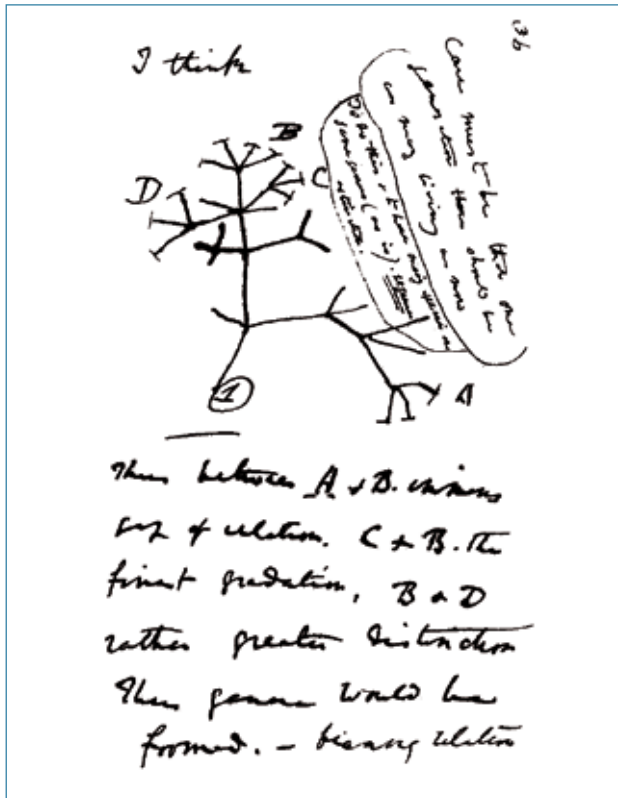 36
I think
Case must be that one
generation then should be
as many living as now
To do this & to have many species in
same genus (as is). requires
extinction.
B
C
D
A
1
Thus between A & B. immense
gap of relation. C & B. the
finest gradation, B & D
rather greater distinction
Thus genera would be
formed. – bearing relation